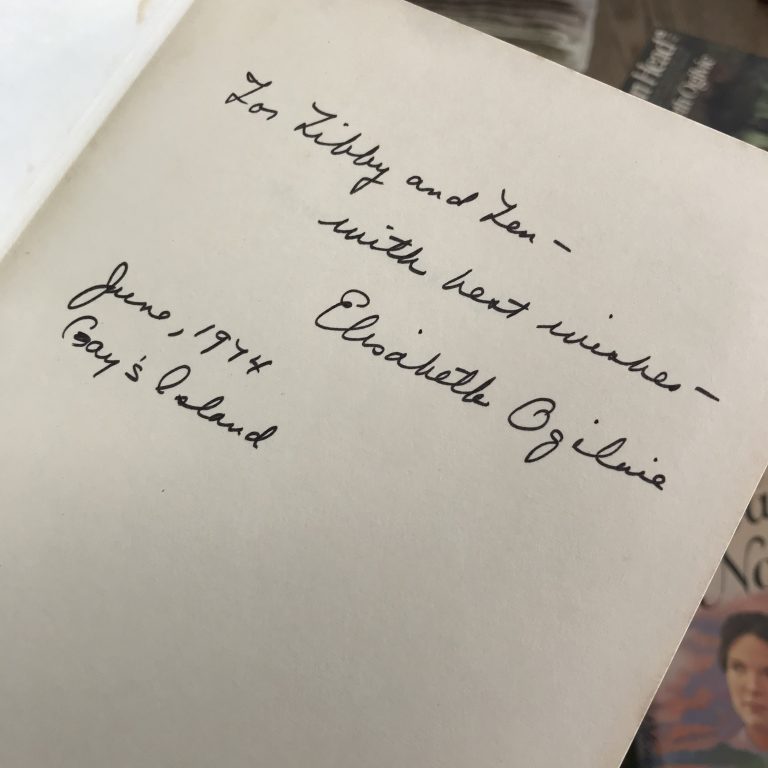 For Libby and Len –
with best wishes –
Elisabeth Ogilvie
June, 1974
Gay's Island
Head
th Ogilvie
No